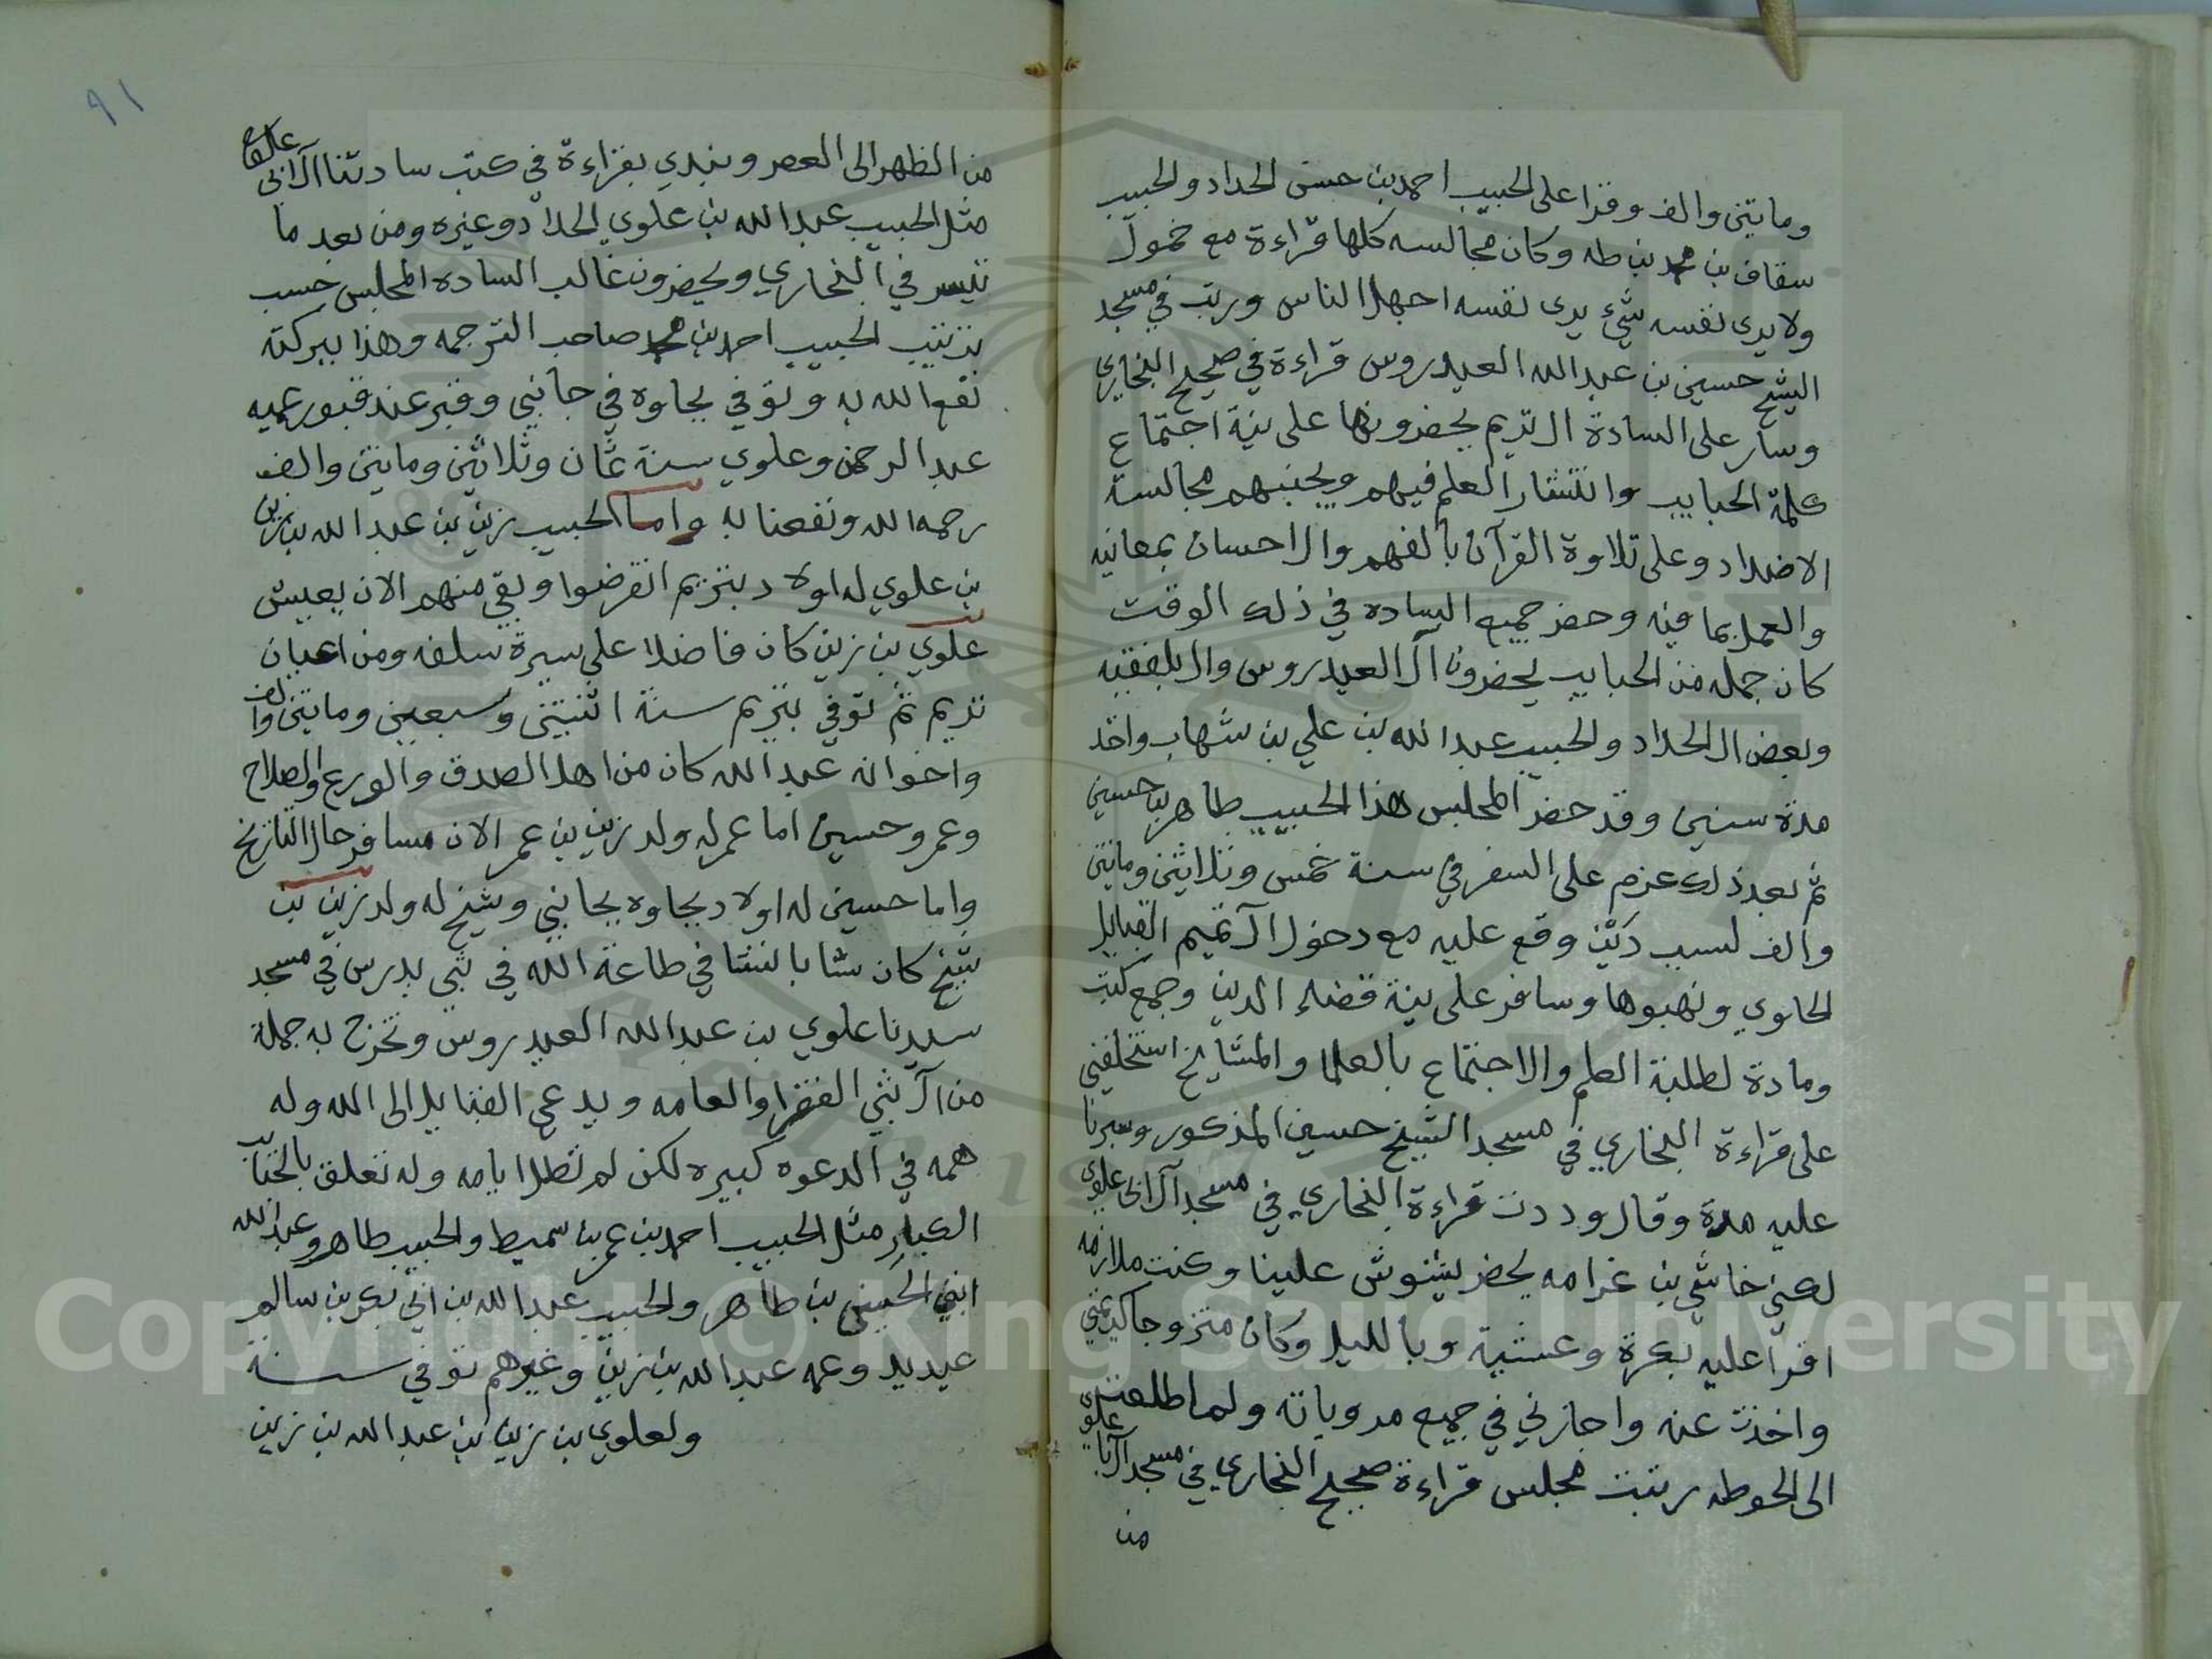 ومايتين والف وقرا على الحبيب احمد بن حسن الحداد والحبيب
سقاف بن محمد بن طه وكان مجالسه كلها قراءة مع خمول
ولا يرى نفسه شيء يرى نفسه اجهل الناس ورتب في مسجد
الشيخ حسين بن عبدالله العيدروس قراءة في صحيح البخاري
وسار على السادة ال تريم يحضرونها على نية اجتماع
كلمة الحبايب وانتشار العلم فيهم ويجنبهم مجالسة
الاضداد وعلى تلاوة القرآن بالفهم والاحسان بمعانيه
والعمل بما فيه وحضر جميع الساده في ذلك الوقت
كان جمله من الحبايب يحضرون آل العيدروس وال بلفقيه
وبعض ال الحداد والحبيب عبدالله بن علي بن شهاب واخذ
مدة سنين وقد حضر المجلس هذا الحبيب طاهر بن حسين
ثم بعد ذلك عزم على السفر في سنة خمس وثلاثين ومايتين
والف لسبب دَيْن وقع عليه مع دخول آل تميم القبايل
الحاوي ونهبوها وسافر على نية قضاء الدين وجمع كتب
ومادة لطلبة العلم والاجتماع بالعلما والمشايخ استخلفني
على قراءة البخاري في مسجد الشيخ حسين المذكور وسرنا
عليه مدة وقال وددت قراءة البخاري في مسجد آل ابي علوي
لكني خاشي بن غرامه يحضر يشوش علينا وكنت ملازمه
اقرا عليه بكرة وعشية وبالليل وكان متزوجا كريمتي
واخذت عنه واجازني في جميع مروياته ولما طلعت
الى الحوطه رتبت مجلس قراءة صحيح البخاري في مسجد آل ابا علوي
من
٩١
من الظهر الى العصر ونبدي بقراءة في كتب سادتنا آل ابي علوي
مثل الحبيب عبدالله بن علوي الحداد وغيره ومن بعد ما
تيسر في البخاري ويحضرون غالب الساده المجلس حسب
ترتيب الحبيب احمد بن محمد صاحب الترجمه وهذا ببركته
نفع الله به وتوفي بجاوه في جانبي وقبر عند قبور عميه
عبدالرحمن وعلوي سنة ثمان وثلاثين ومايتين والف
رحمه الله ونفعنا به واما الحبيب زين بن عبدالله بن زين
بن علوي له اولاد بتريم انقرضوا وبقي منهم الان يعيش
علوي بن زين كان فاضلا على سيرة سلفه ومن اعيان
تريم ثم توفي بتريم سنة اثنتين وسبعين ومايتين والف
واخوانه عبدالله كان من اهل الصدق والورع والصلاح
وعمر وحسين اما عمر له ولد زين بن عمر الان مسافر حال التاريخ
واما حسين له اولاد بجاوه بجانبي وشيخ له ولد زين بن
شيخ كان شابا نشا في طاعة الله في ثبي يدرس في مسجد
سيدنا علوي بن عبدالله العيدروس وتخرج به جملة
من آل ثبي الفقرا والعامه ويدعي القبايل الى الله وله
همه في الدعوه كبيره لكن لم تطل ايامه وله تعلق بالحبايب
الكبار مثل الحبيب احمد بن عمر بن سميط والحبيب طاهر وعبدالله
ابني الحسين بن طاهر والحبيب عبدالله بن ابي بكر بن سالم
عيديد وعمه عبدالله بن زين وغيرهم توفي سنة
ولعلوي بن زين بن عبدالله بن زين
Copyright © King Saud University